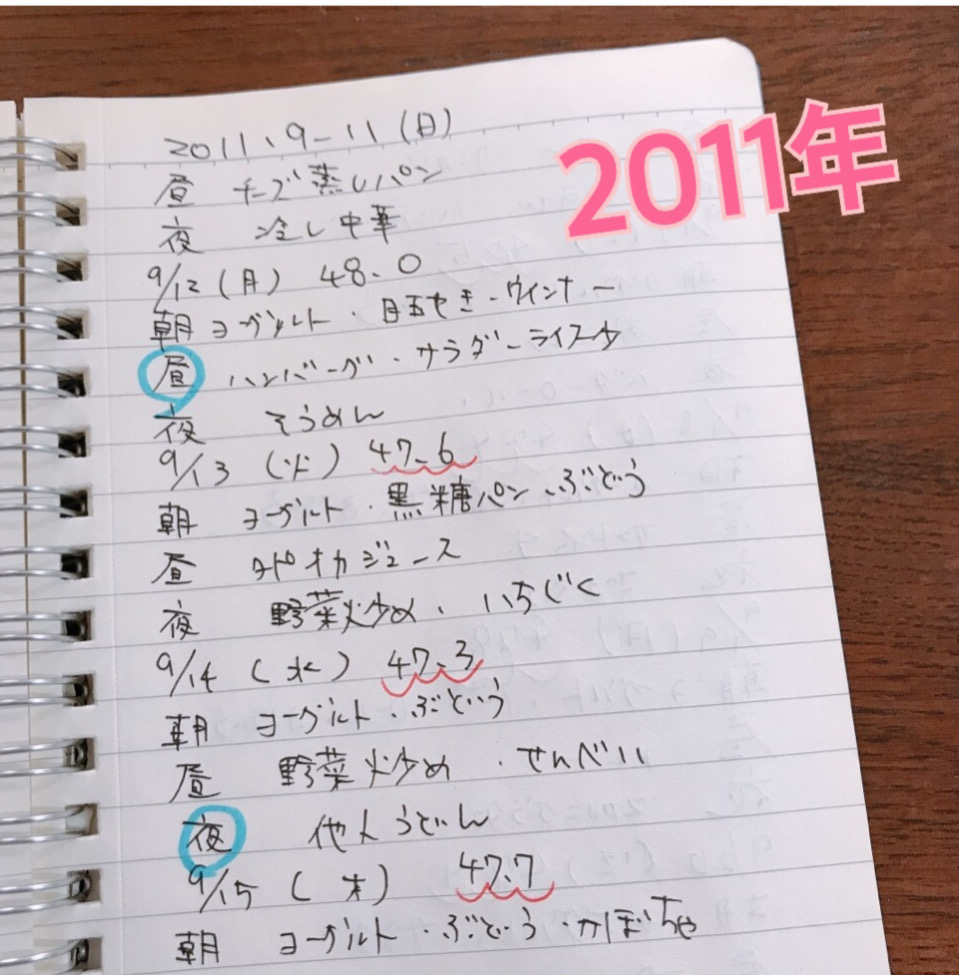 2011年
2011、9-11(日)
昼 チーズ蒸しパン
夜 冷し中華
9/12(月) 48.0
朝 ヨーグルト・目玉やき・ウインナー
昼 ハンバーグ・サラダ・ライス少
夜 そうめん
9/13 (火) 47.6
朝 ヨーグルト・黒糖パン・ぶどう
昼 タピオカジュース
夜 野菜炒め・いちじく
9/14 (水) 47.3
朝 ヨーグルト・ぶどう
昼 野菜炒め・せんべい
夜 他人うどん
9/15 (木) 47.7
朝 ヨーグルト・ぶどう・かぼちゃ